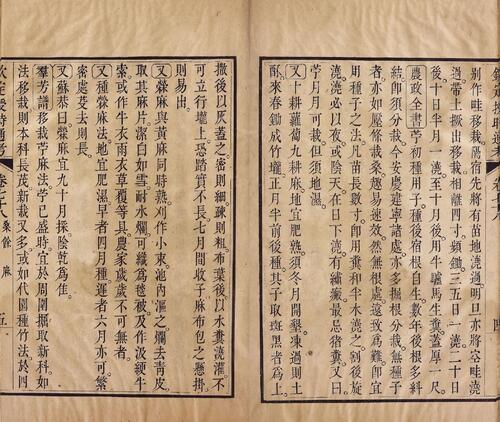 別作畦移栽臨宿先將有苗地澆過明旦亦將空畦澆
過帶土撅出移栽相離四寸頻鋤三五日一澆二十日
後十日半月一澆至十月後用牛驢馬生糞蓋厚一尺
農政全書苧初種用子種後宿根自生數年後根多糾
結卽須分栽今安慶建寧諸處亦多掘根分栽無種子
者亦如壓條栽桑趨易速效然無根處遠致為難卽宜
用種子之法凡苗長數寸卽用糞和半水澆之割後旋
澆澆必以夜或陰天在日下澆有繡瘢最忌猪糞又曰
苧月月可栽但須地濕
又十耕蘿蔔九耕麻地宜肥熟須冬月開墾凍過則土
酥來春鋤成竹壠正月半前後種其子取斑黑者為上
撒後以灰蓋之密則細疎則粗布葉後以水糞澆灌不
可立行壠上恐踏實不長七月間收子麻布包之懸掛
則易出
又檾麻與黃麻同時熟刈作小束池內漚之爛去青皮
取其麻片潔白如雪耐水爛可織為毯被及作汲綆牛
索或作牛衣雨衣草覆等具農家歲歲不可無者
又種檾麻法地宜肥濕早者四月種遲者六月亦可繁
密處芟去則長
又蘇恭曰檾麻宜九十月採陰乾為佳
羣芳譜移栽苧麻法苧已盛時宜於周圍掘取新科如
法移栽則本科長茂新栽又多或如代園種竹法於四
欽定授時通考 卷七十八 桑餘 麻 五